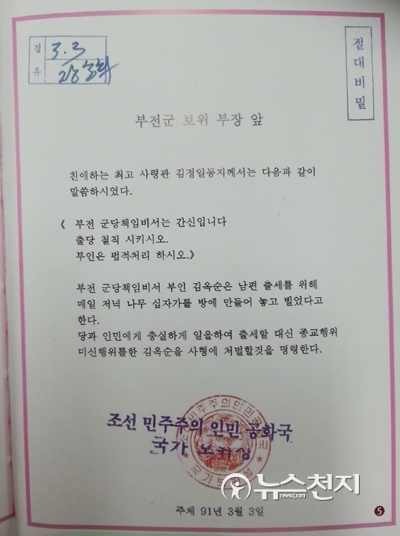 절대비밀
경유
3. 3
부전군 보위 부장 앞
친애하는 최고 사령관 김정일동지께서는 다음과 같이
말씀하시였다.
《 부전 군당책임비서는 간신입니다
출당 철직 시키시오.
부인은 법적처리 하시오.》
부전 군당책임비서 부인 김옥순은 남편 출세를 위해
매일 저녁 나무 십자가를 방에 만들어 놓고 빌었다고
한다.
당과 인민에게 충실하게 일을하여 출세할 대신 종교행위
미신행위를한 김옥순을 사형에 처벌할것을 명령한다.
조선 민주주의 인민 공화국
국가 보위성
주체 91년 3월 3일
뉴스천지
newscj.com
5